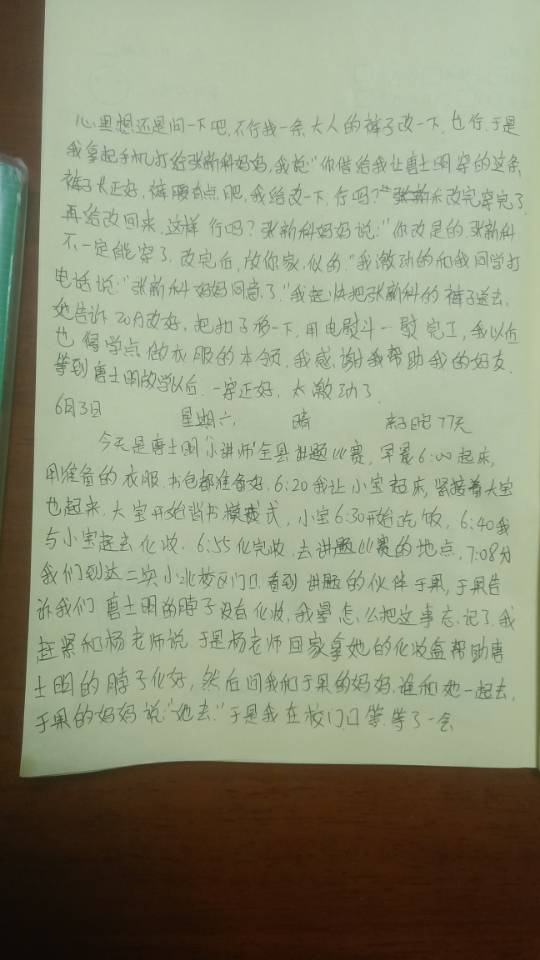 心里想还是问一下吧,不行找一条大人的裤子改一下,也行,于是
我拿起手机打给张新科妈妈,我说:"你借给我让唐士明穿的这条
裤子长正好,裤腰有点肥,我给改一下,行吗?"改完穿完了
再给改回来,这样行吗?张新科妈妈说:"你改是的,张新科
不一定能穿了,改完后,放你家,似的."我激动的和我同学打
电话说:"张新科妈妈同意了."我赶快把张新科的裤子送去,
她告诉20分改好,把扣子移一下,用电熨斗一熨完工,我以后
也得学点做衣服的本领,我感谢我帮助我的好友.
等到唐士明放学以后,一穿正好,太激动了.
6月3日 星期六 晴 77天
今天是唐士明"小讲师"全县讲题比赛,早晨6:00起床,
用准备的衣服.书包都准备好.6:20我让小宝起床,紧接着大宝
也起来.大宝开始背书模式,小宝6:30开始吃饭,6:40我
与小宝起去化妆.6:55化完妆,去讲题比赛的地点,7:08分
我们到达二实小北校区门口.看到讲题的伙伴于果,于果告
诉我们唐士明的脖子没有化妆,我晕,怎么把这事忘记了.我
赶紧和杨老师说,于是杨老师回家拿她的化妆盒帮助唐
士明的脖子化好,然后问我们于果的妈妈.谁和她一起去,
于果的妈妈说:"她去."于是我在校门口等.等了一会